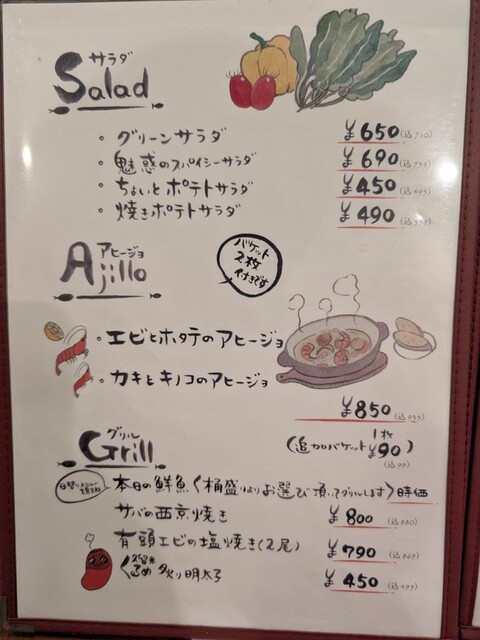 サラダ
Salad
・グリーンサラダ ¥650(込710)
・魅惑のスパイシーサラダ ¥690(込759)
・ちょいとポテトサラダ ¥450(込495)
・焼きポテトサラダ ¥490(込539)
アヒージョ
Ajillo
バケット
2枚
付きです
・エビとホタテのアヒージョ
・カキとキノコのアヒージョ
¥850(込935)
グリル
Grill
(追加バケット1枚¥90)
(込99)
本日の鮮魚〈桶盛りよりお選び頂いてグリルします〉時価
サバの西京焼き ¥800(込880)
有頭エビの塩焼き(2尾) ¥790(込869)
炙り明太子 ¥450(込495)